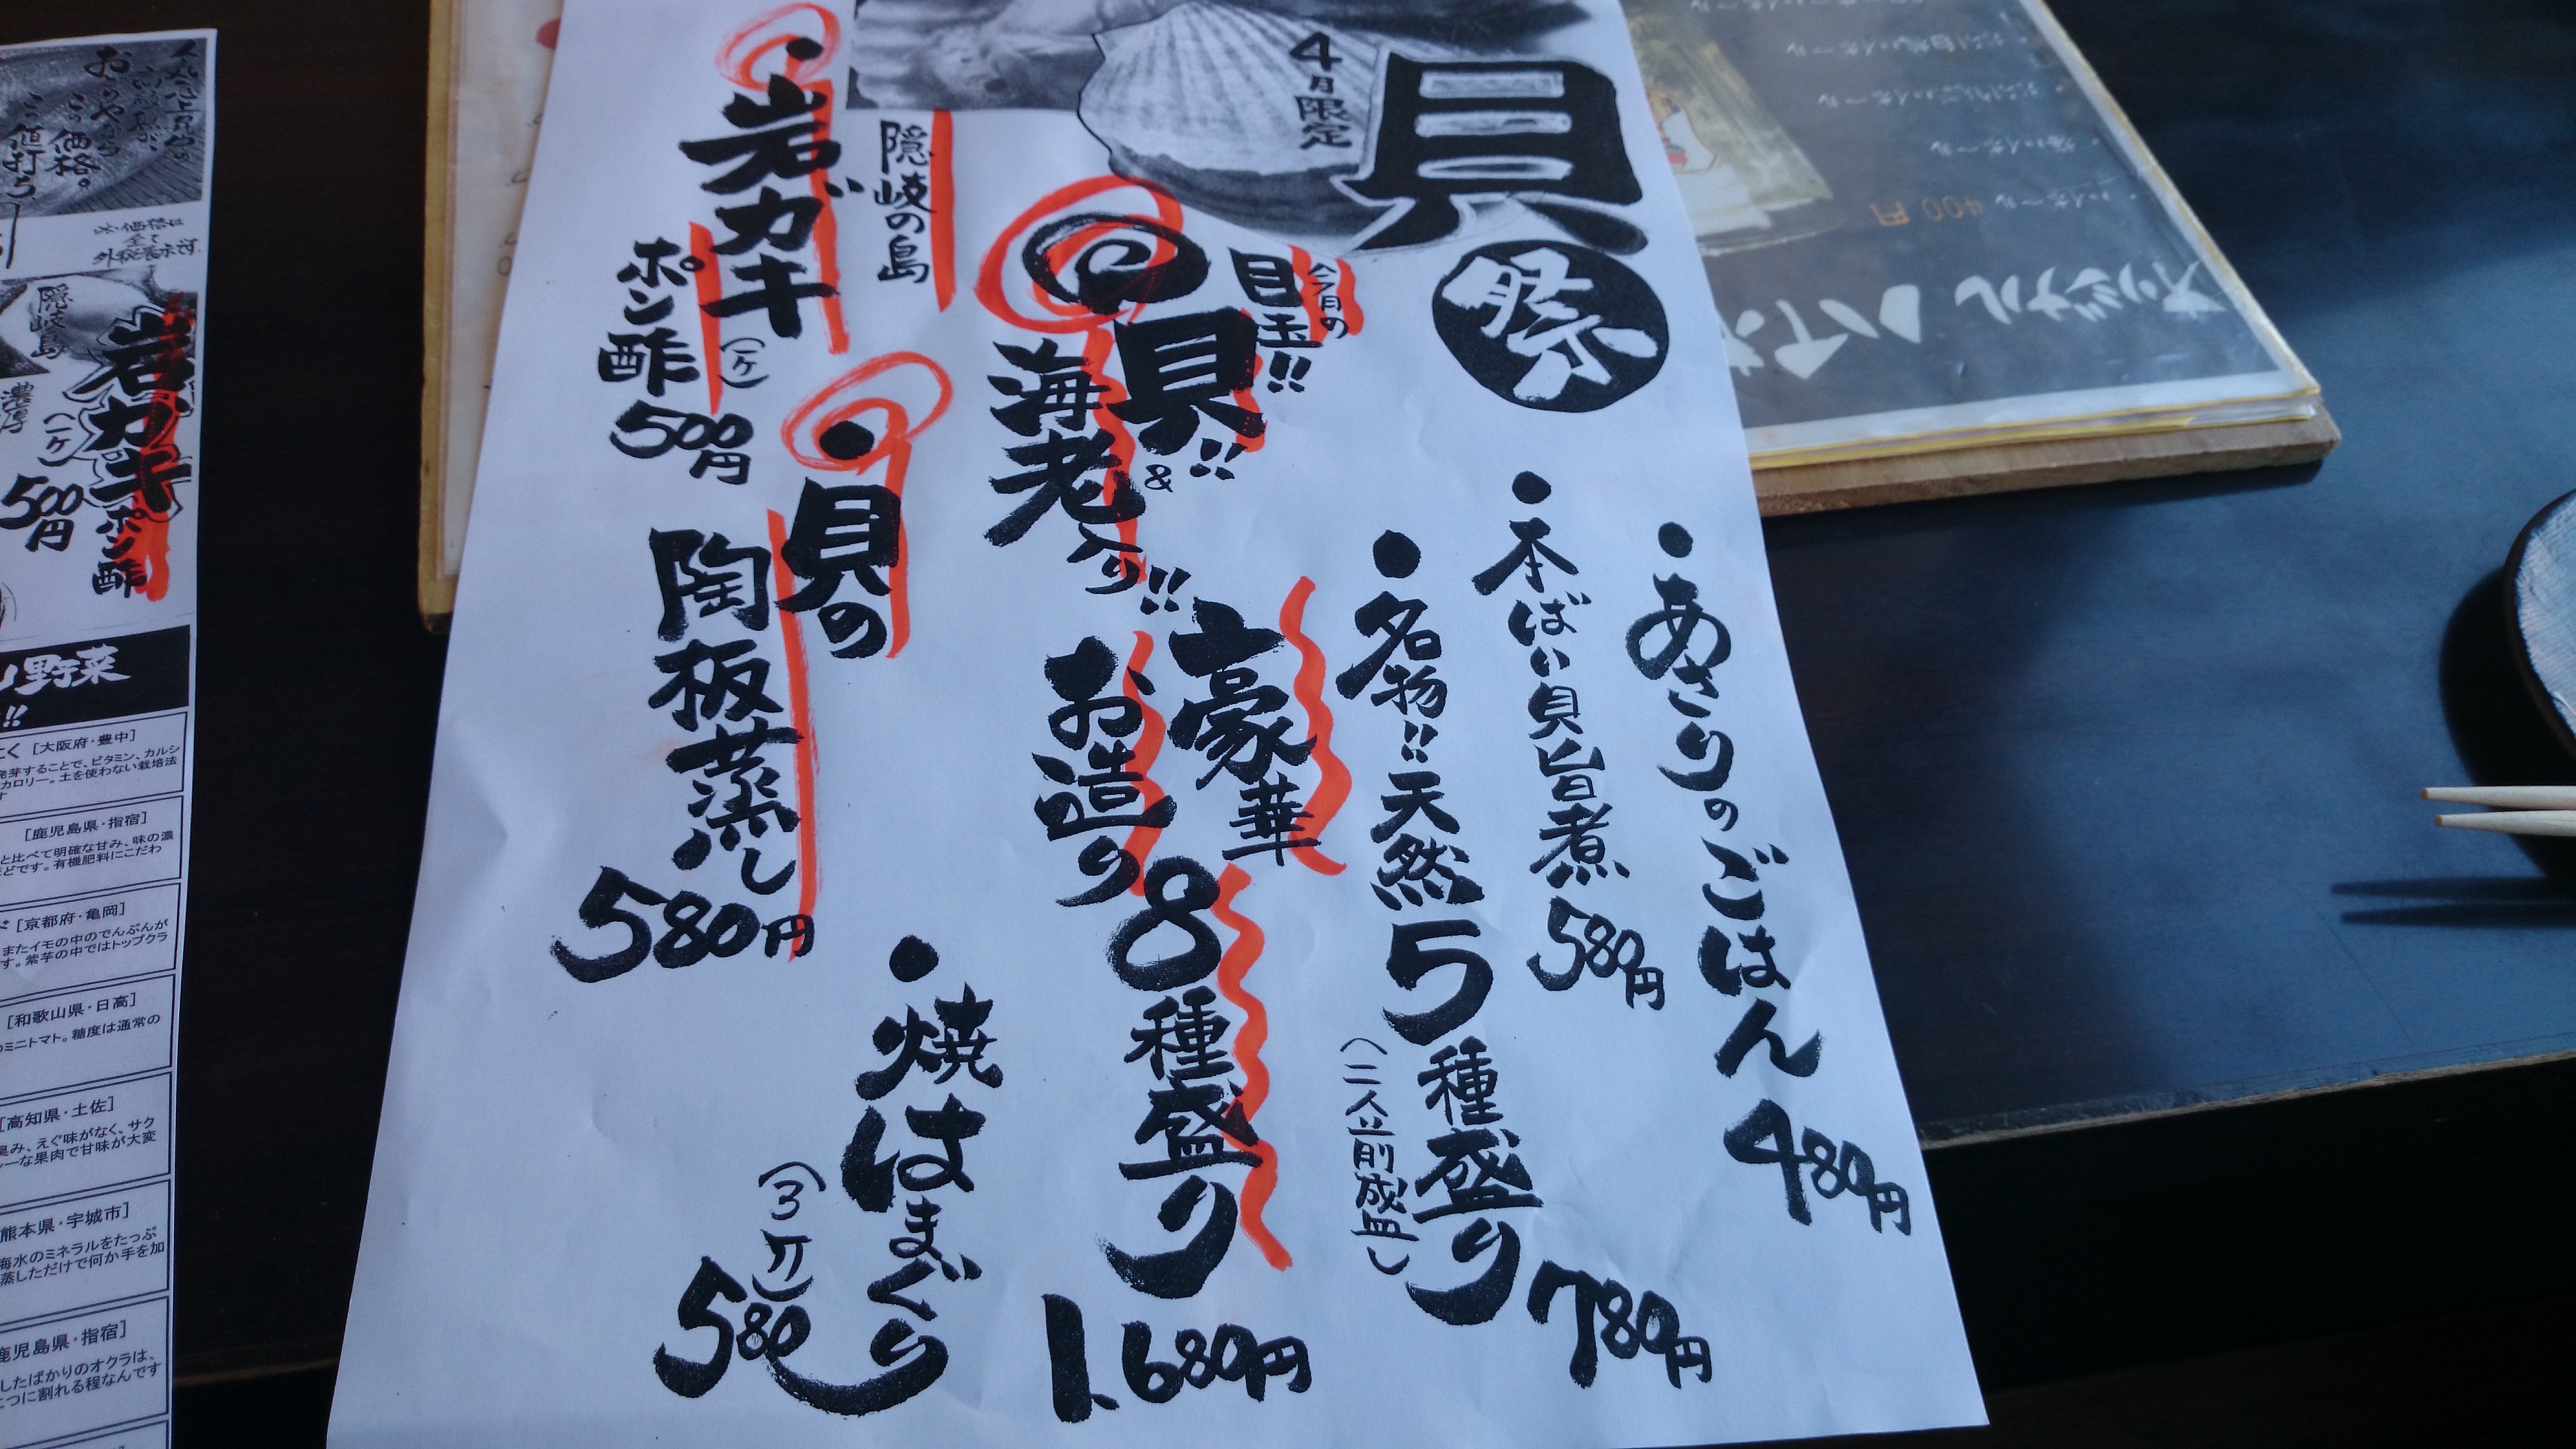 貝祭
4月限定
・あさりのごはん 480円
・本ばい貝旨煮 580円
・名物!!天然5種盛り 780円
(二人前盛し
今月の
目玉!!
貝!!
&
海老入り!!
豪華
お造り
8種盛り 1,680円
・焼はまぐり
(3ケ)
580
・貝の
陶板蒸し
580円
隠岐の島
・岩ガキ(一ケ)
ポン酢
500円
オリジナル ハイボ
400円
価格。
この値打ち、
※価格は
全て
外税表示です。
隠岐島
岩ガキ
(一ケ)
ポン酢
濃厚
500円
野菜
!!
[大阪府・豊中]
発芽することで、ビタミン、カルシ
カロリー。土を使わない栽培法
[鹿児島県・指宿]
と比べて明確な甘み、味の濃
どです。有機肥料にこだわ
[京都府・亀岡]
またイモの中のでんぷんが
す。紫芋の中ではトップクラ
[和歌山県・日高]
ミニトマト。糖度は通常の
[高知県・土佐]
臭み、えぐ味がなく、サク
ーな果肉で甘味が大変
熊本県・宇城市]
海水のミネラルをたっぷ
蒸しただけで何か手を加
鹿児島県・指宿]
したばかりのオクラは、
つに割れる程なんです